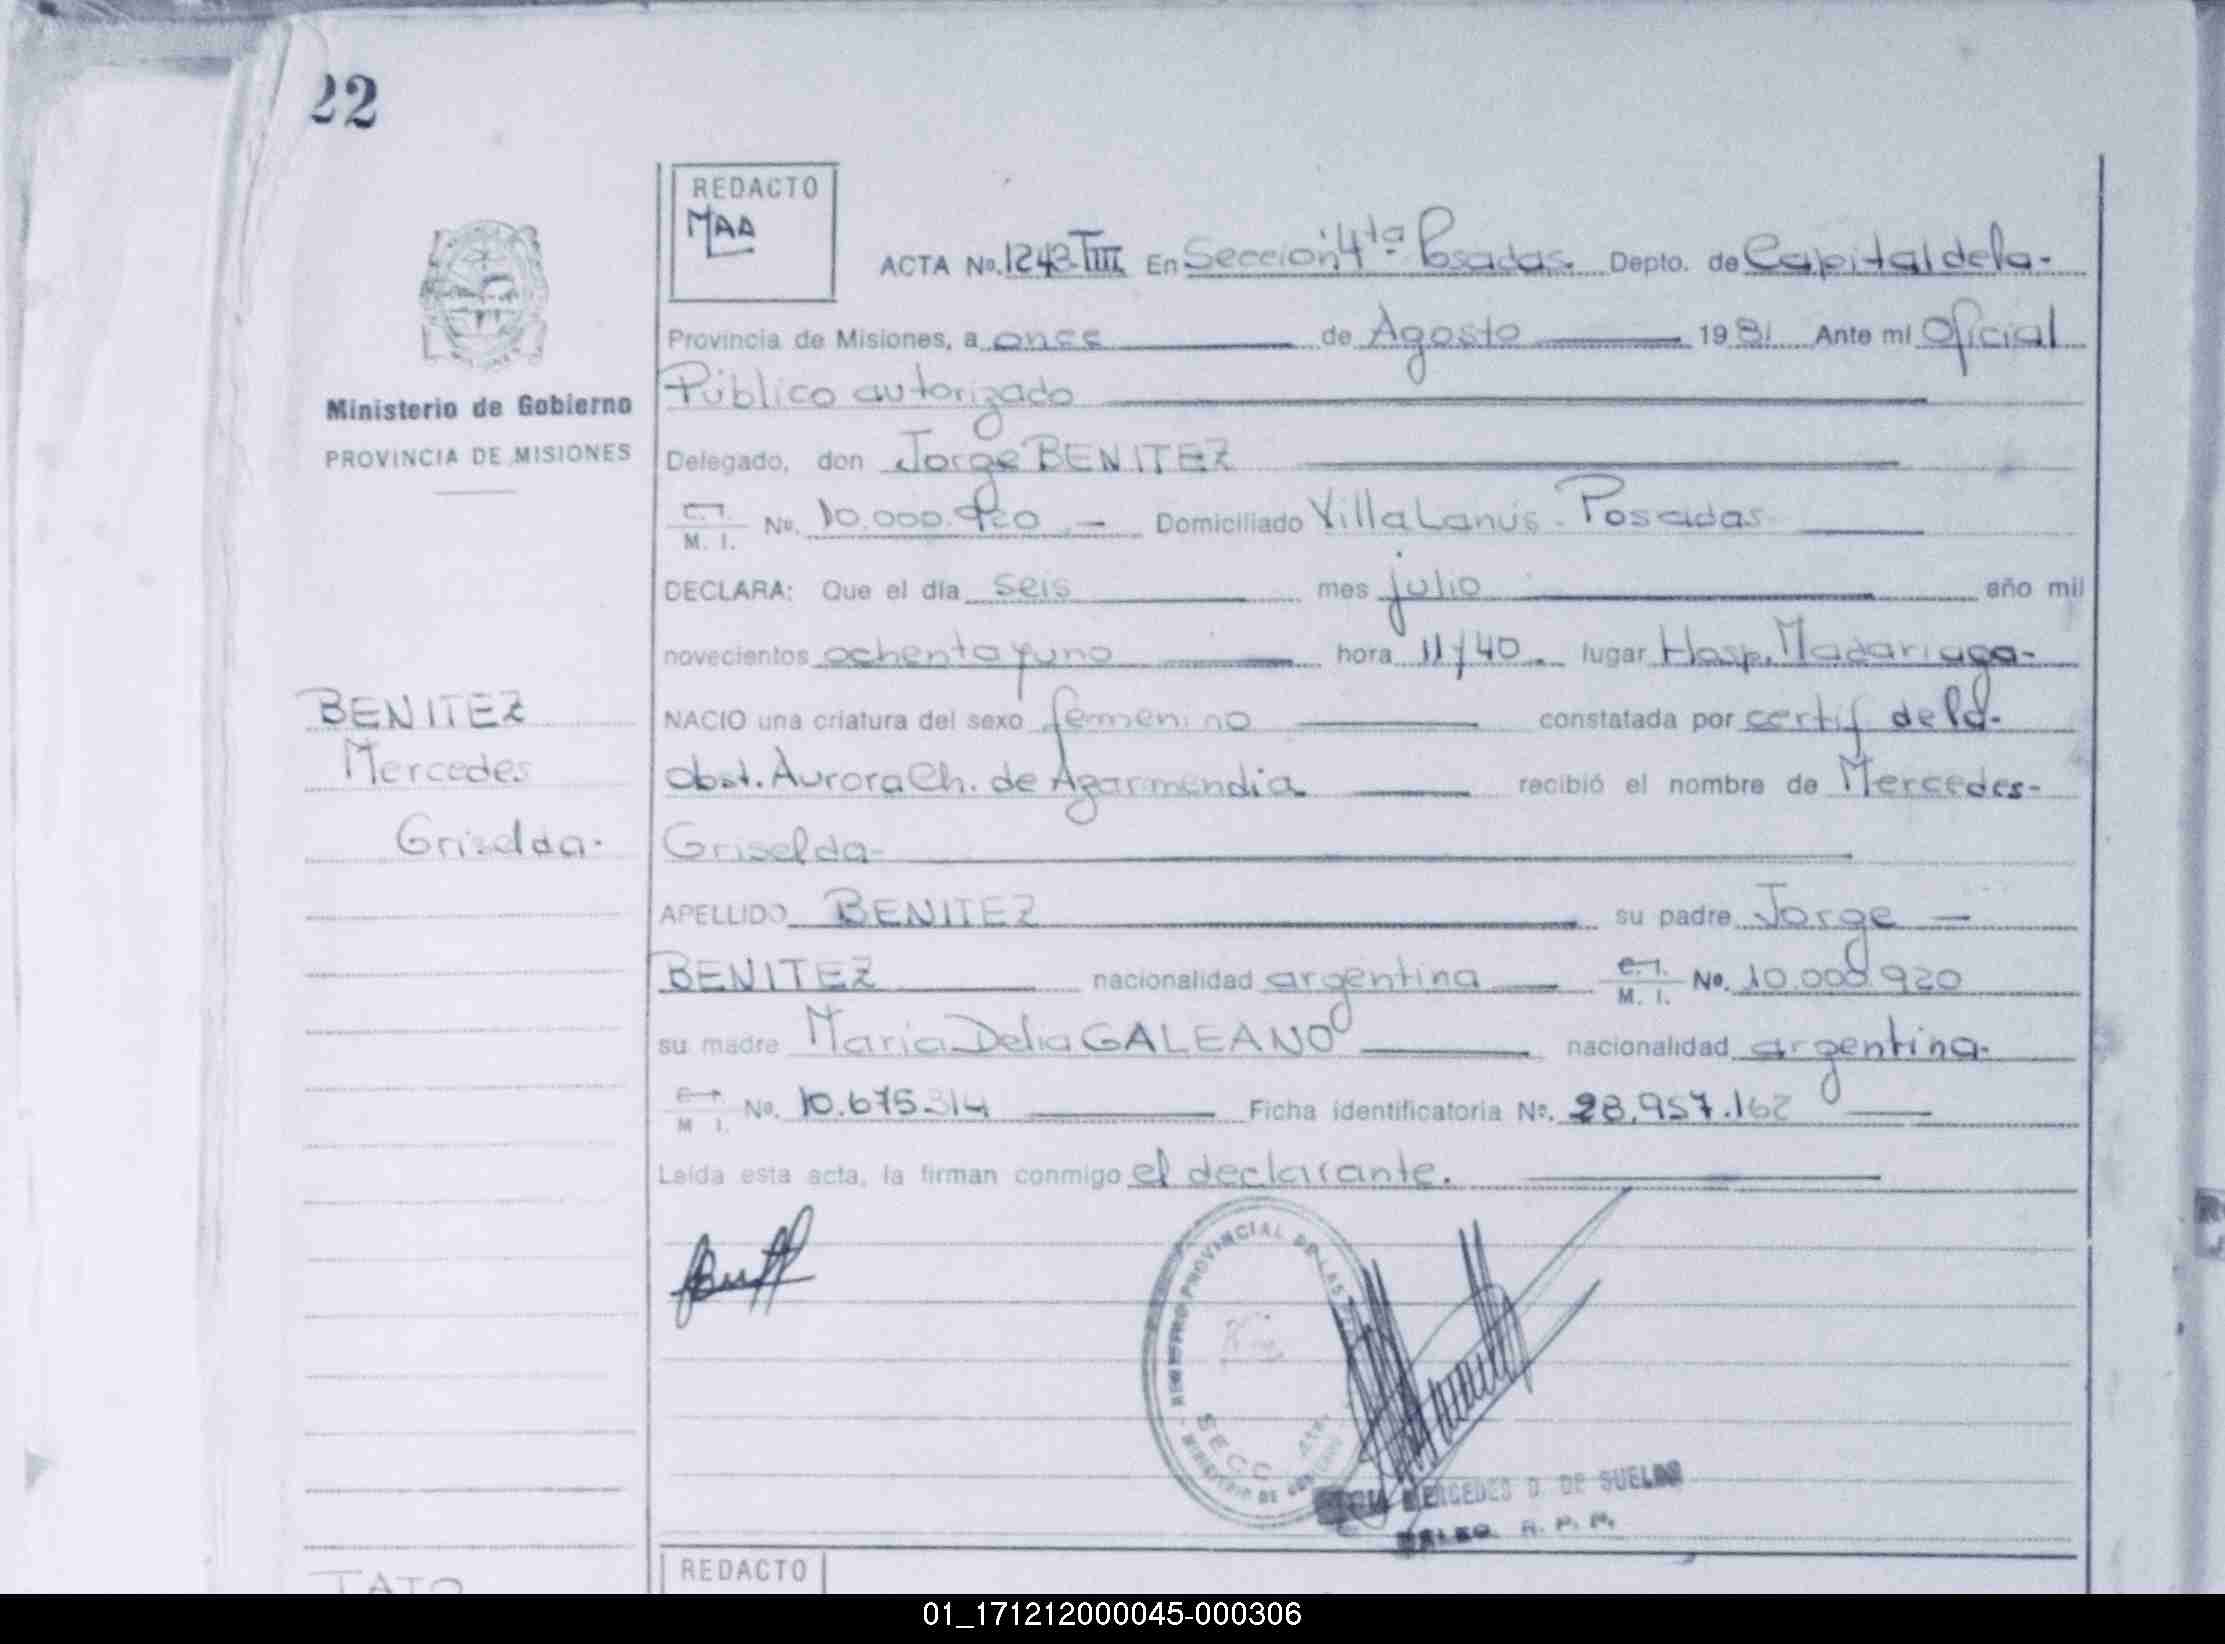 22
REDACTO
MAA
ACTA No. 1243 TIII En Sección 4ta Posadas. Depto. de Capital de la-
Provincia de Misiones, a once de Agosto 1981 Ante mi Oficial
Público autorizado
Ministerio de Gobierno
PROVINCIA DE MISIONES
Delegado, don Jorge BENITEZ
M. I. No. 10.000.920 - Domiciliado Villa Lanús - Posadas
DECLARA: Que el día seis mes julio año mil
novecientos ochenta y uno hora 11/40. lugar Hosp. Madariaga-
BENITEZ
Mercedes
Griselda-
NACIO una criatura del sexo femenino constatada por certif de la-
obst. Aurora Ch. de Agarmendia recibió el nombre de Mercedes-
Griselda-
APELLIDO BENITEZ su padre Jorge -
BENITEZ nacionalidad argentina C.I. M. I. No. 10.000.920
su madre María Delia GALEANO nacionalidad argentina-
M I. No. 10.675.314 Ficha identificatoria No. 28.957.162
Leída esta acta, la firman conmigo el declarante.
PROVINCIAL DE LAS
SECC
MINISTERIO DE
MERCEDES D. DE SUELDO
R. P. P.
REDACTO
01_171212000045-000306